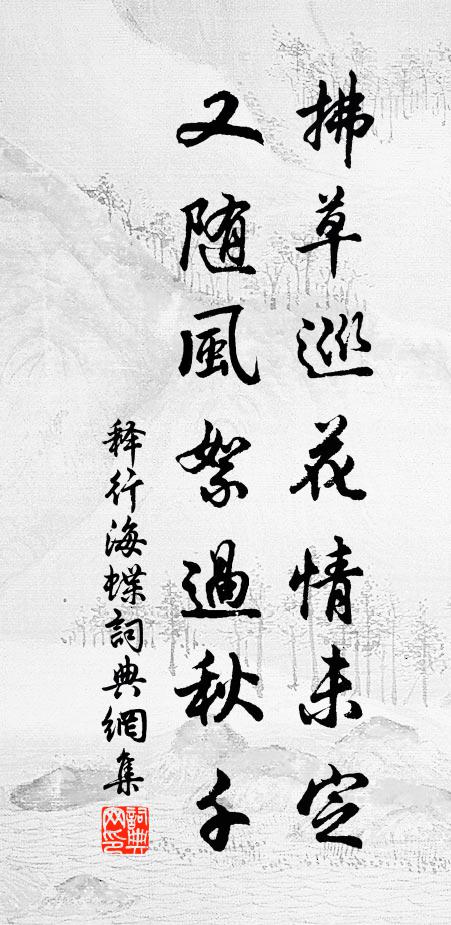 拂草巡花情未定
又随風絮過秋千
释行海蝶詞典網集
詞典网印